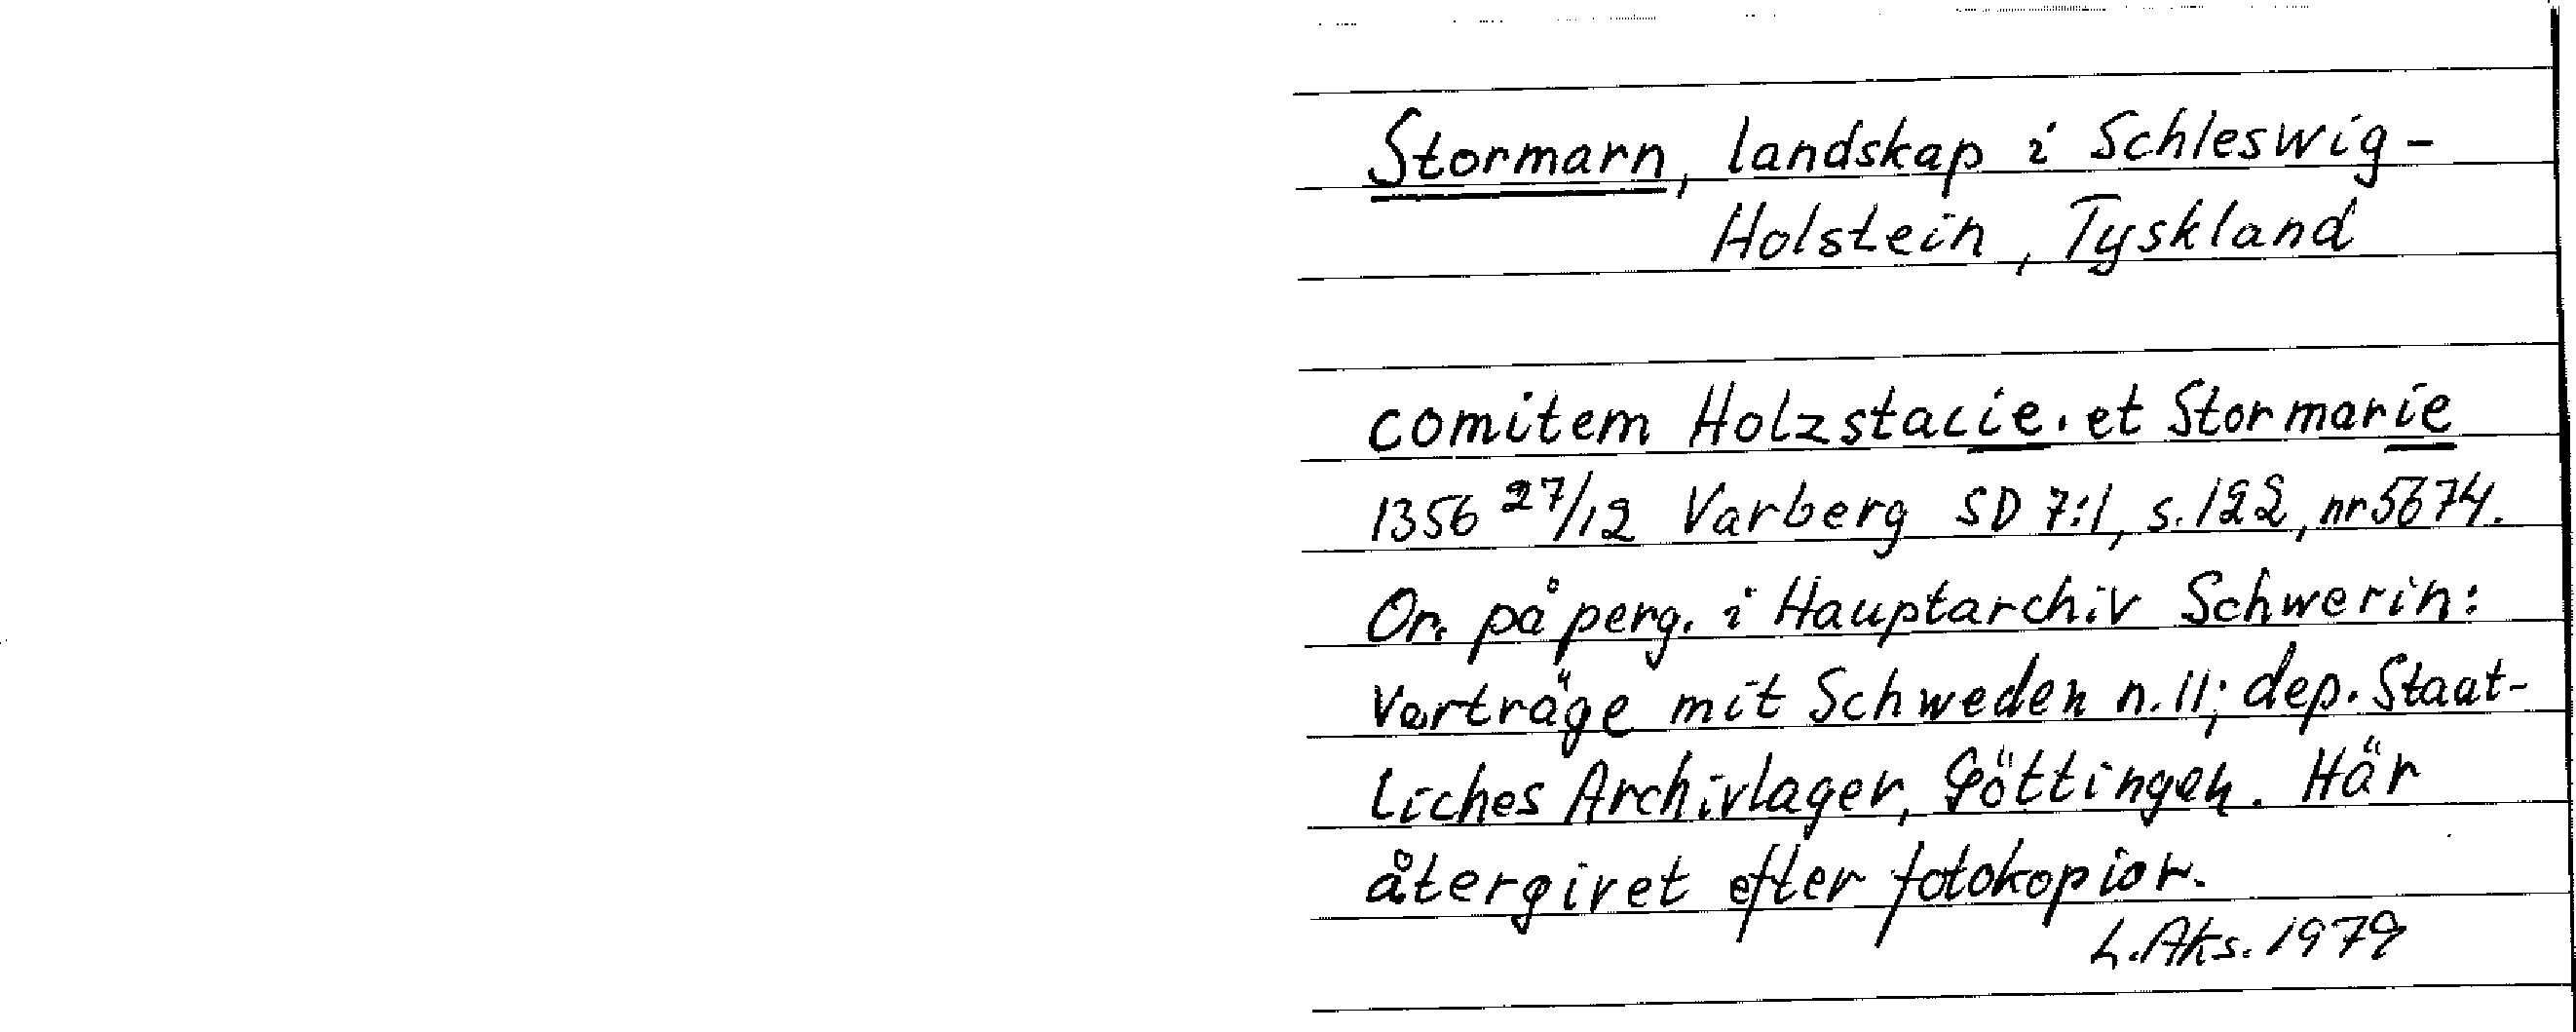 Stormarn, landskap i Schleswig-
Holstein, Tyskland
comitem Holzstacie. et Stormarie
1356 27/12 Varberg SD 7:1, s. 122, nr 5674.
Or. på perg. i Hauptarchiv Schwerin:
Verträge mit Schweden n. 11; dep. Staat-
liches Archivlager, Göttingen. Här
återgivet efter fotokopior.
L. Aks. 1979